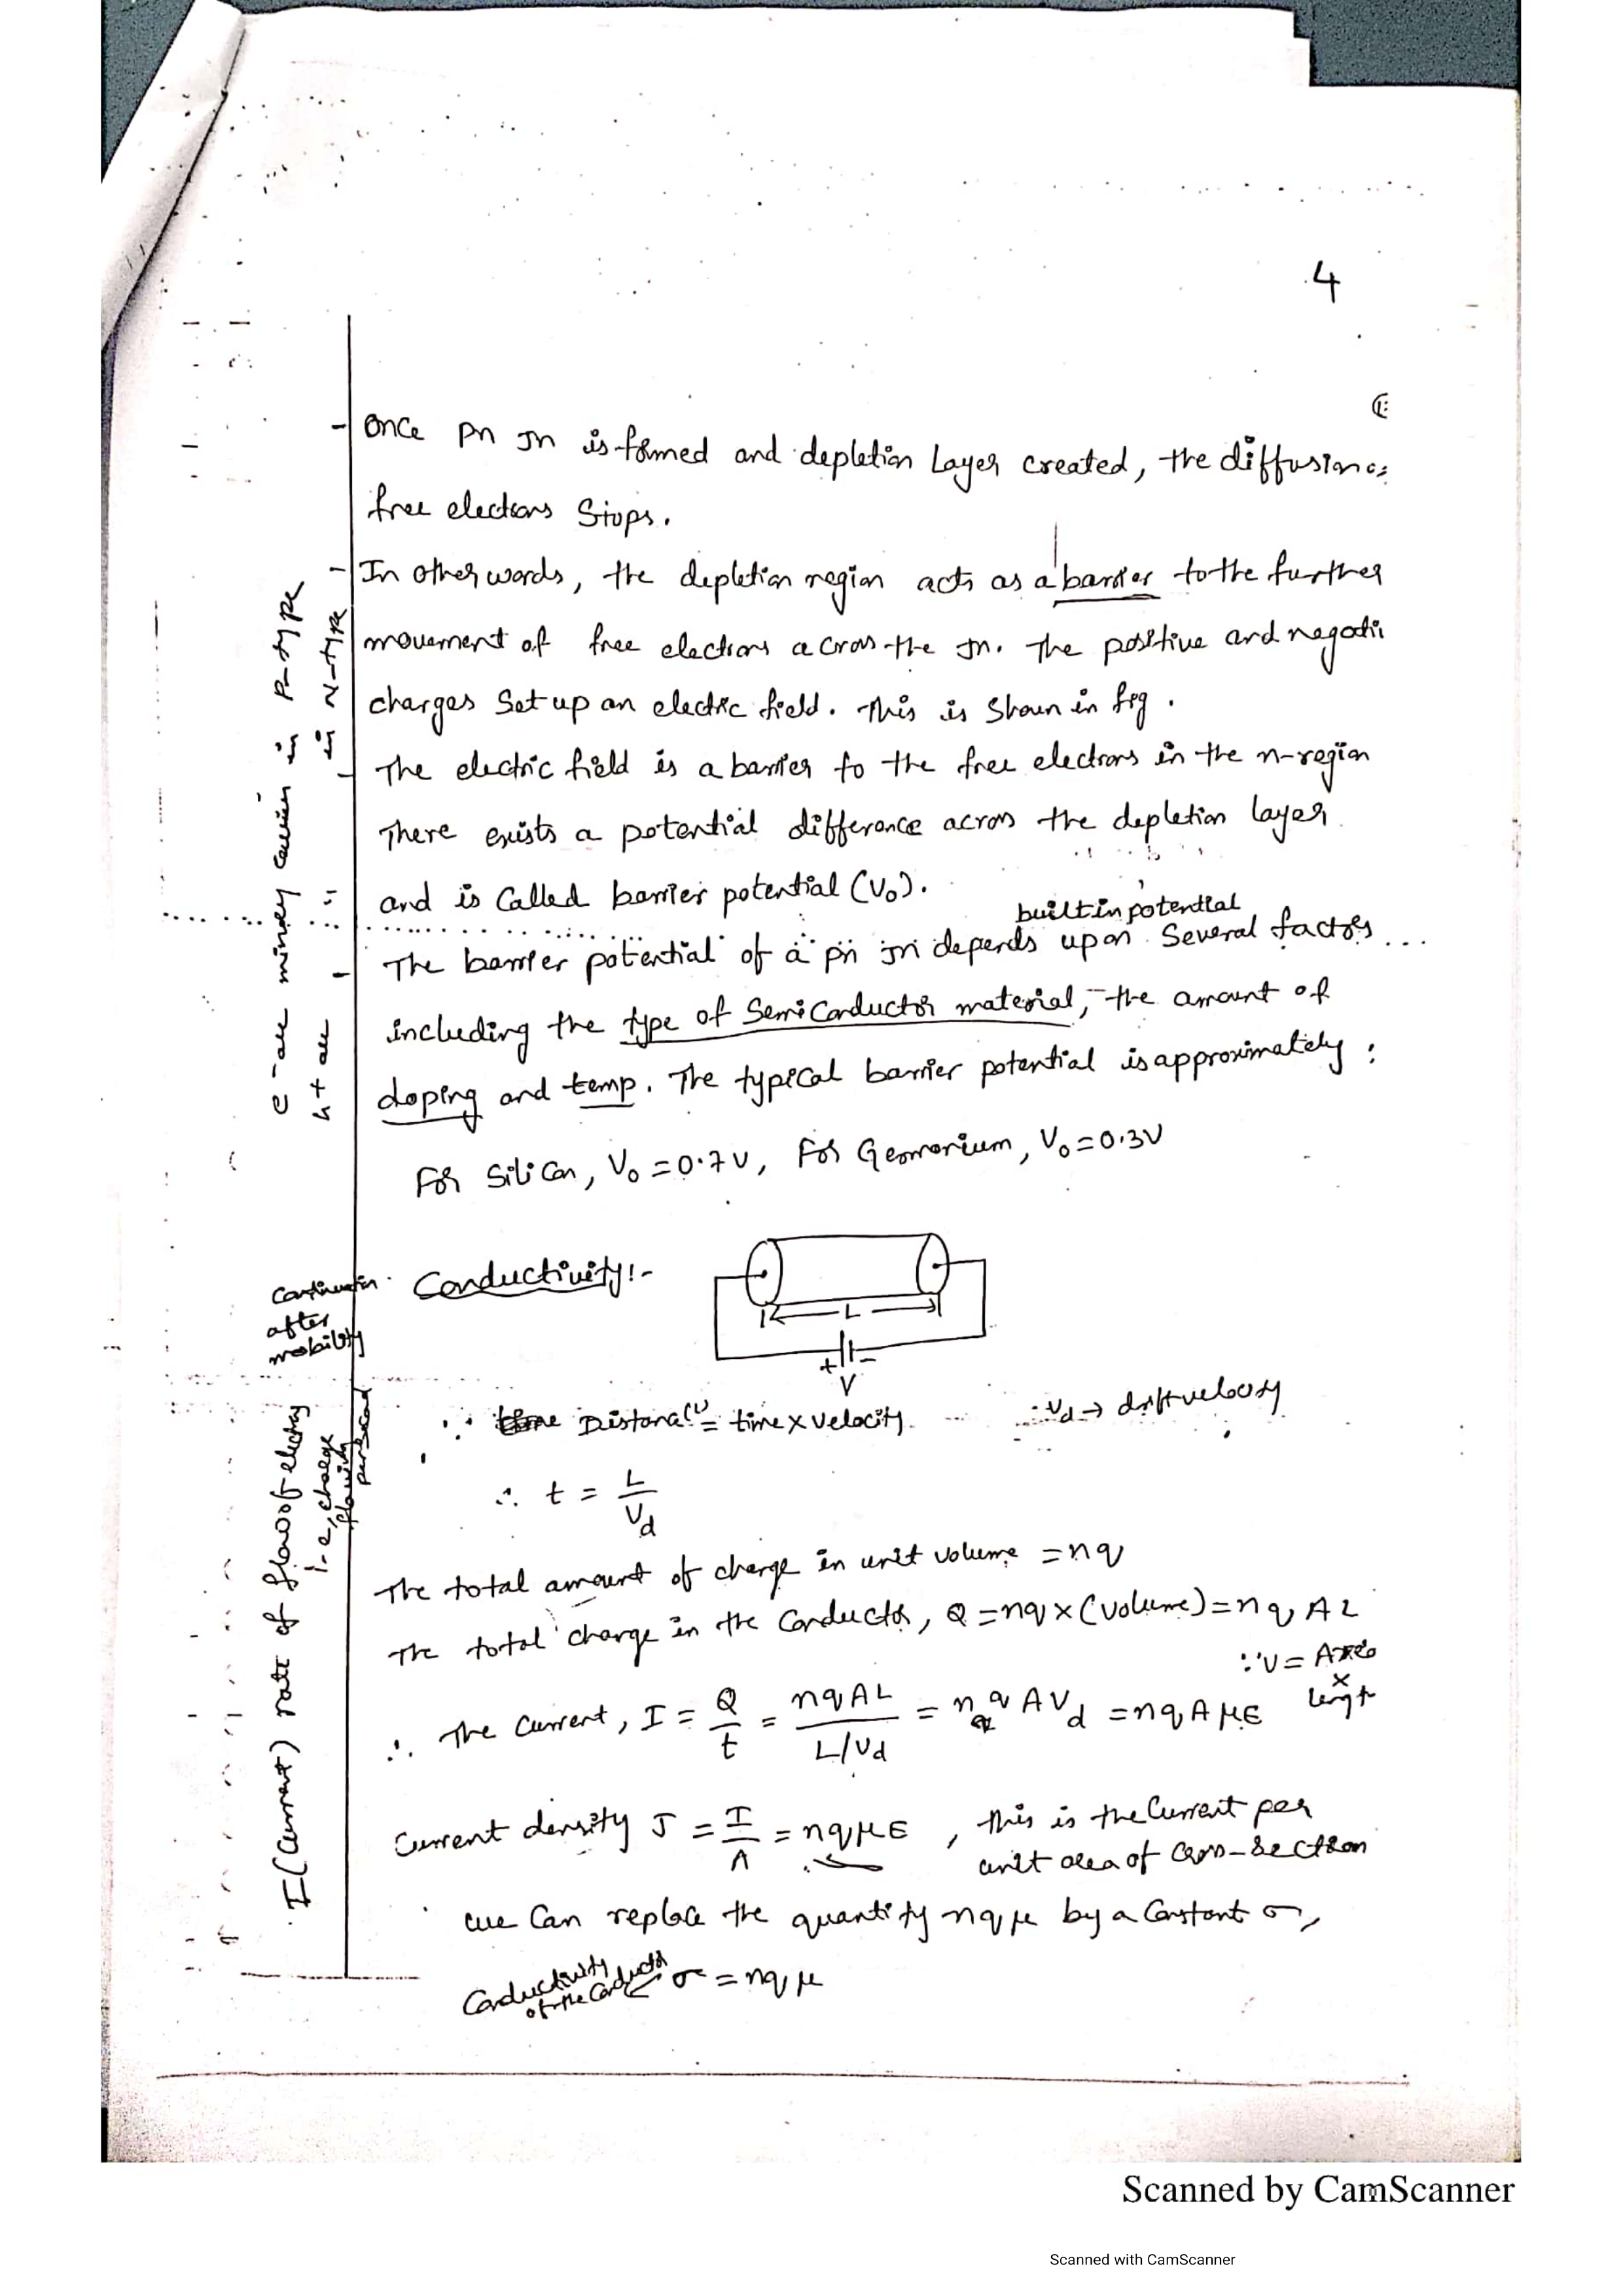 4
- Once Pn Jn is formed and depletion Layer created, the diffusion
free electrons Stops.
- In other words, the depletion region acts as a barrier to the further
movement of free electrons across the Jn. The positive and negati
charges Set up an electric field. This is Shown in fig.
- The electric field is a barrier to the free electrons in the n-region
There exists a potential difference across the depletion layer
and is Called barrier potential (V₀).
built in potential
- The barrier potential of a pn Jn depends upon Several factors
including the type of SemiConductor material, the amount of
doping and temp. The typical barrier potential is approximately:
For Silicon, V₀ = 0.7V, For Germanium, V₀ = 0.3V
e⁻ are minority carriers in P-type
h+ are " " in N-type
Continuation after mobility
Conductivity:-
L
+ -
V
∵ Distance = time x velocity. ∵ Vd → drift velocity
∴ t = L/Vd
The total amount of charge in unit volume = nq
The total charge in the Conductor, Q = nq x (volume) = nqAL
∵ V = Area x length
∴ The current, I = Q/t = nqAL / L/Vd = nqAVd = nqAμE
Current density J = I/A = nqμE, this is the Current per
unit area of Cross-Section
we Can replace the quantity nqμ by a Constant σ,
Conductivity of the Conductor ← σ = nqμ
I (Current) rate of flow of electrons
i.e, charge flowing per second
Scanned by CamScanner
Scanned with CamScanner